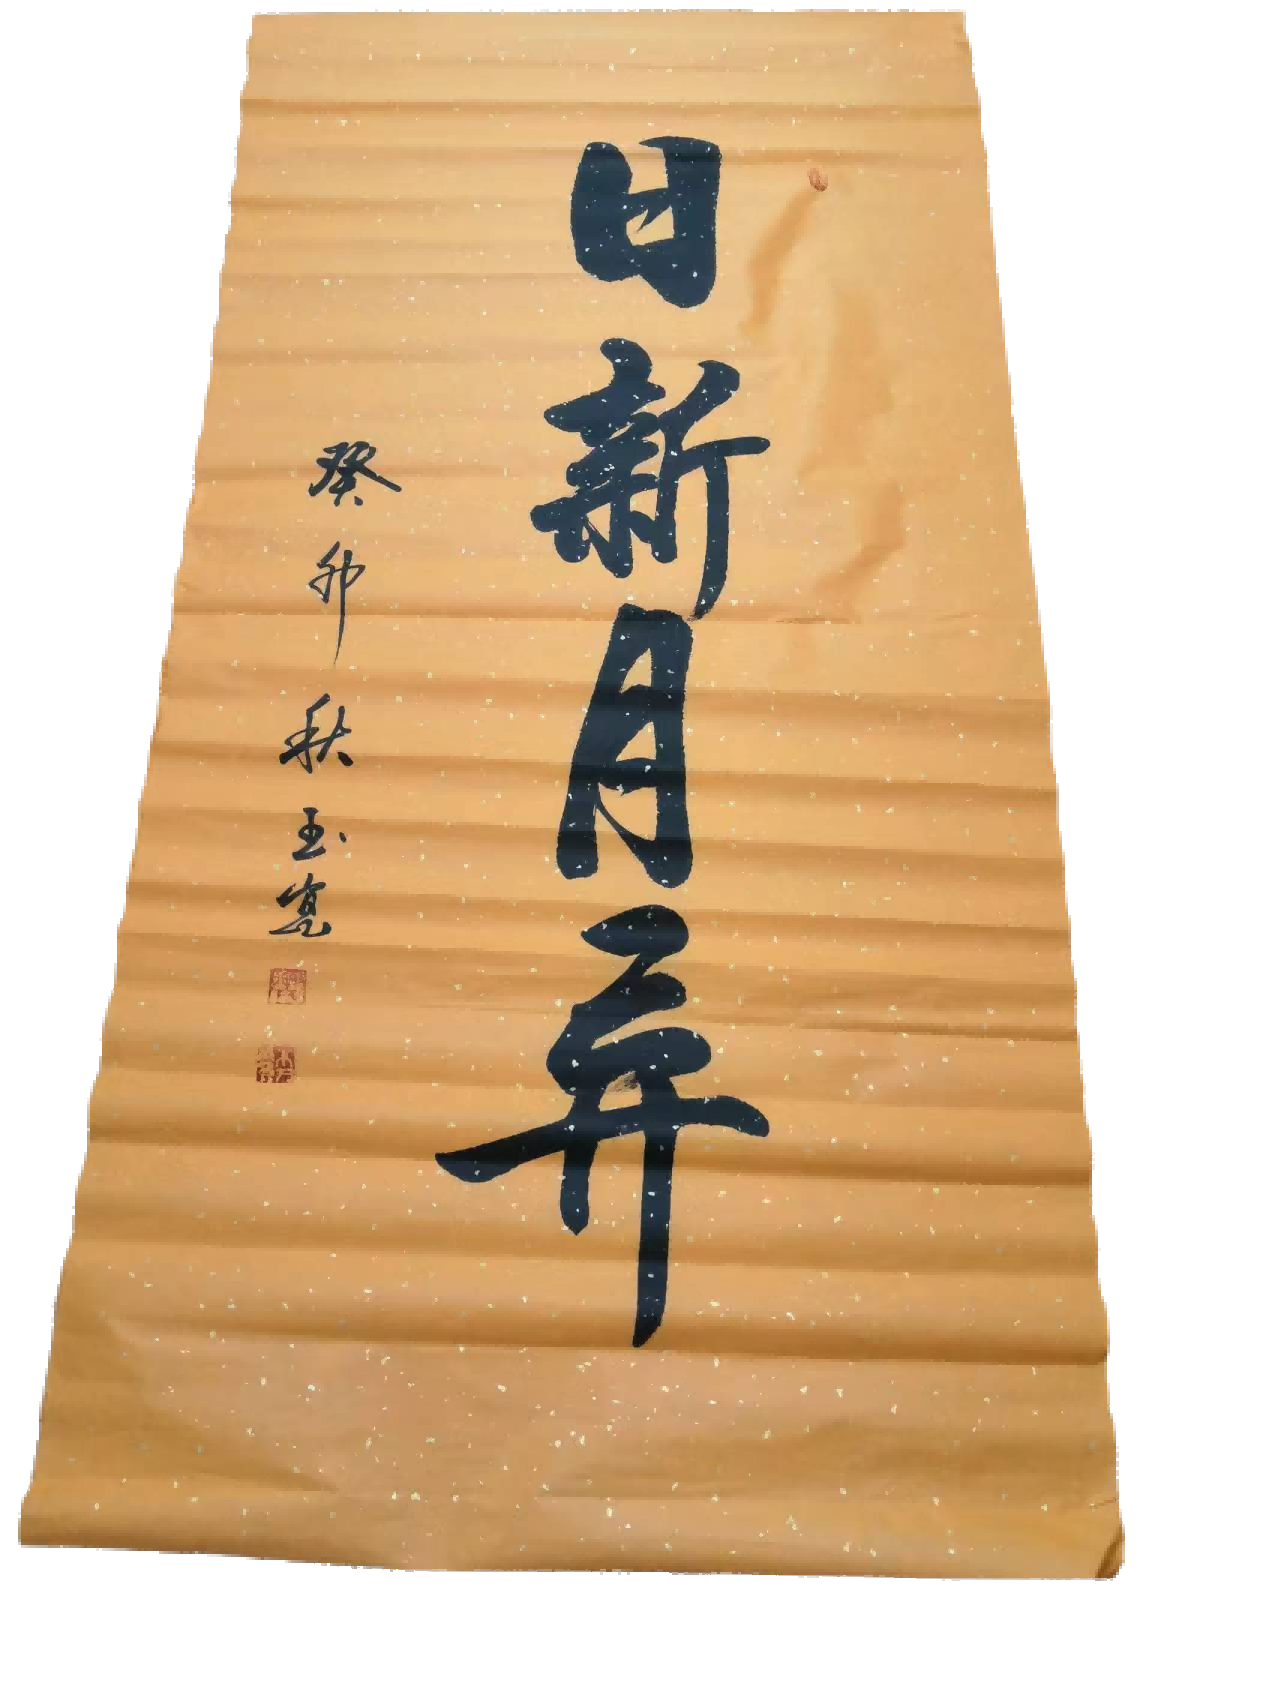 日新月异
癸卯秋玉宽